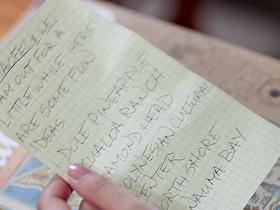 & WEI
AM OUT FOR A
LITTLE WHILE. HERE
ARE SOME FUN
IDEAS
DOLE PINEAPPLE
KUALOA RANCH
DIAMOND HEAD
POLYNESIAN CULTURAL
CENTER
NORTH SHORE
HANAUMA BAY